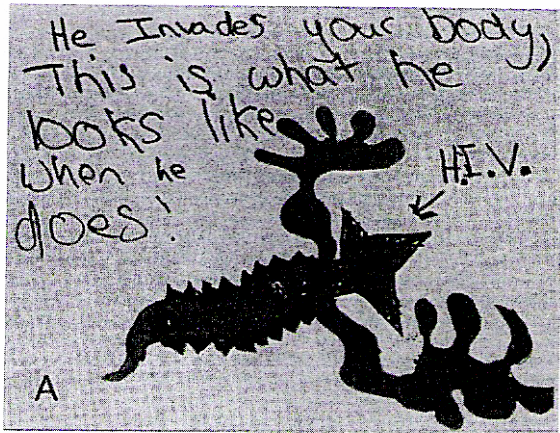 He Invades your body,
This is what he
looks like
when he
does!
H.I.V.
A